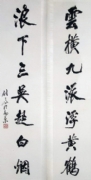 雲横九派浮黄鶴
浪下三吳起白烟